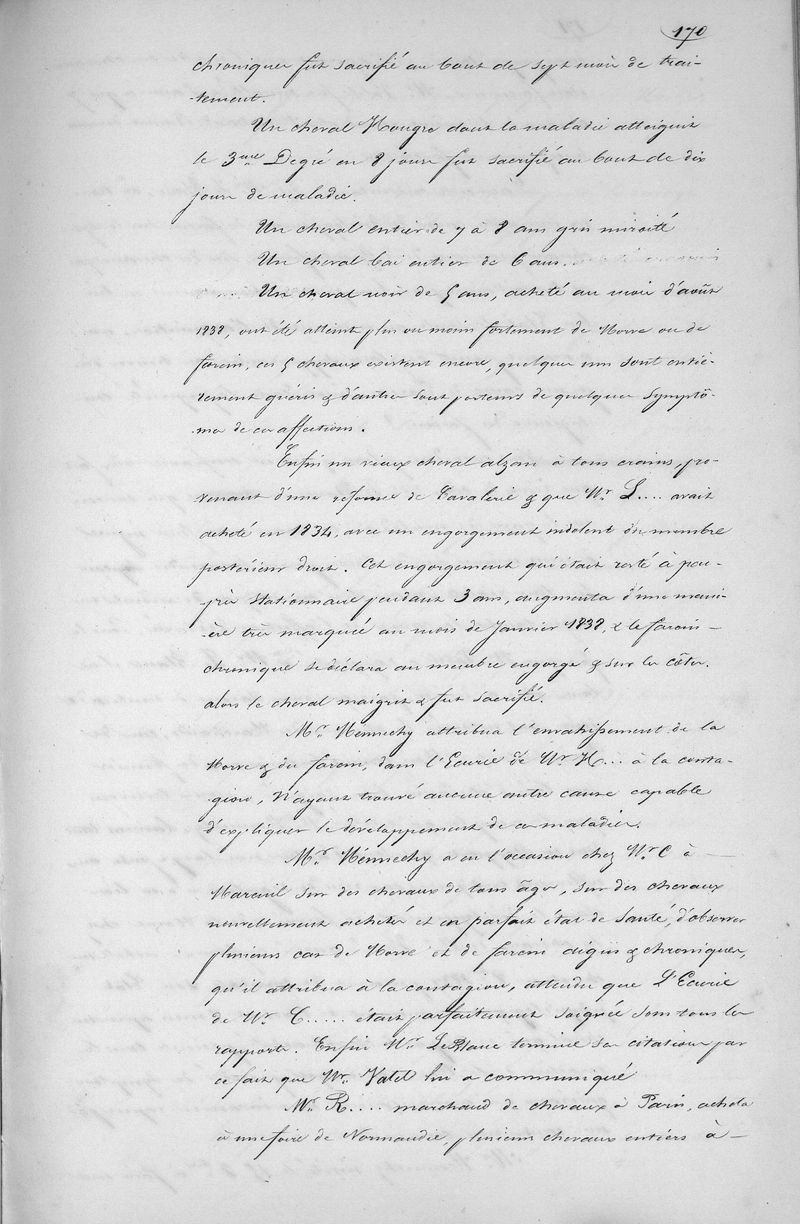 170
chroniques fut sacrifié au bout de sept mois de trai-
tement.
Un cheval Hongre dont la maladie atteignit
le 3me Degré en 8 jours fut sacrifié au bout de dix
jours de maladie.
Un cheval entier de 7 à 8 ans gris miroité
Un cheval bai entier de 6 ans
Un cheval noir de 5 ans, acheté au mois d'août
1838, ont été atteints plus ou moins fortement de Morve ou de
farcin, ces 5 chevaux existent encore, quelques uns sont entiè-
rement guéris & d'autres sont porteurs de quelques symptô-
mes de ces affections.
Enfin un vieux cheval alzan à tous crains, pro-
venant d'une reforme de Cavalerie & que Mr. L.... avait
acheté en 1834, avec un engorgement indolent du membre
postérieur droit. Cet engorgement qui était resté à peu-
près stationnaire pendant 3 ans, augmenta d'une mani-
ère très marquée au mois de Janvier 1838, & le farcin-
chronique se déclara au membre engorgé & sur les côtes.
alors le cheval maigrit & fut sacrifié.
Mr. Hennechy attribua l'envahissement de la
Morve & du farcin, dans l'Ecurie de Mr H... à la conta-
gion, N'ayant trouvé aucune autre cause capable
d'expliquer le développement de ces maladies.
Mr. Hénnechy a eu l'occasion chez Mr. C à -
Mareuil sur des chevaux de tous âges, sur des chevaux
nouvellement achetés et en parfait état de santé, d'observer
plusieurs cas de Morve et de farcin aigus & chroniques,
qu'il attribua à la contagion, attendu que L'Ecurie
de Mr. C..... était parfaitement soignée sous tous les
rapports. Enfin Mr. LeBlanc termine sa citation par
ce fait que Mr. Vatel lui a communiqué
Mr. R.... marchand de chevaux à Paris, acheta
à une foire de Normandie, plusieurs chevaux entiers à -